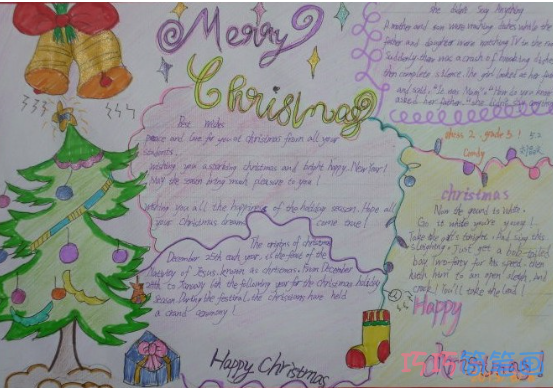 Merry
Christmas
She didn't Say Anything
A mother and son were washing dishes while the
father and daughter were watching TV in the
Suddenly there was a crash of breaking dishes
then complete silence. The girl looked at her
and said, "Is was Mum". "How do you know
asked her father. "she didn't say
Best wishes
peace and love for you at christmas from all your
wishing you a sparking christmas and bright happy New Year!
May the season bring much pleasure to you!
wishing you all the happiness of the holiday season. Hope all
your christmas dreams come true!
The origins of christmas
December 25th each year, is the feast of the
Nativity of Jesus, known as christmas. From December
24th to January 6th the following year for the christmas holiday
Season. During the festival, the christians have held
a grand ceremony!
class 2, grade 3!
Candy
christmas
Now the ground is white.
Go it while you're young!
Take the girls tonight. And sing this
sleighing. Just get a bob-tailed
bay two-forty for his speed then
hitch him to an open sleigh and
crack! You'll take the lead!
Happy
christmas
Happy Christmas